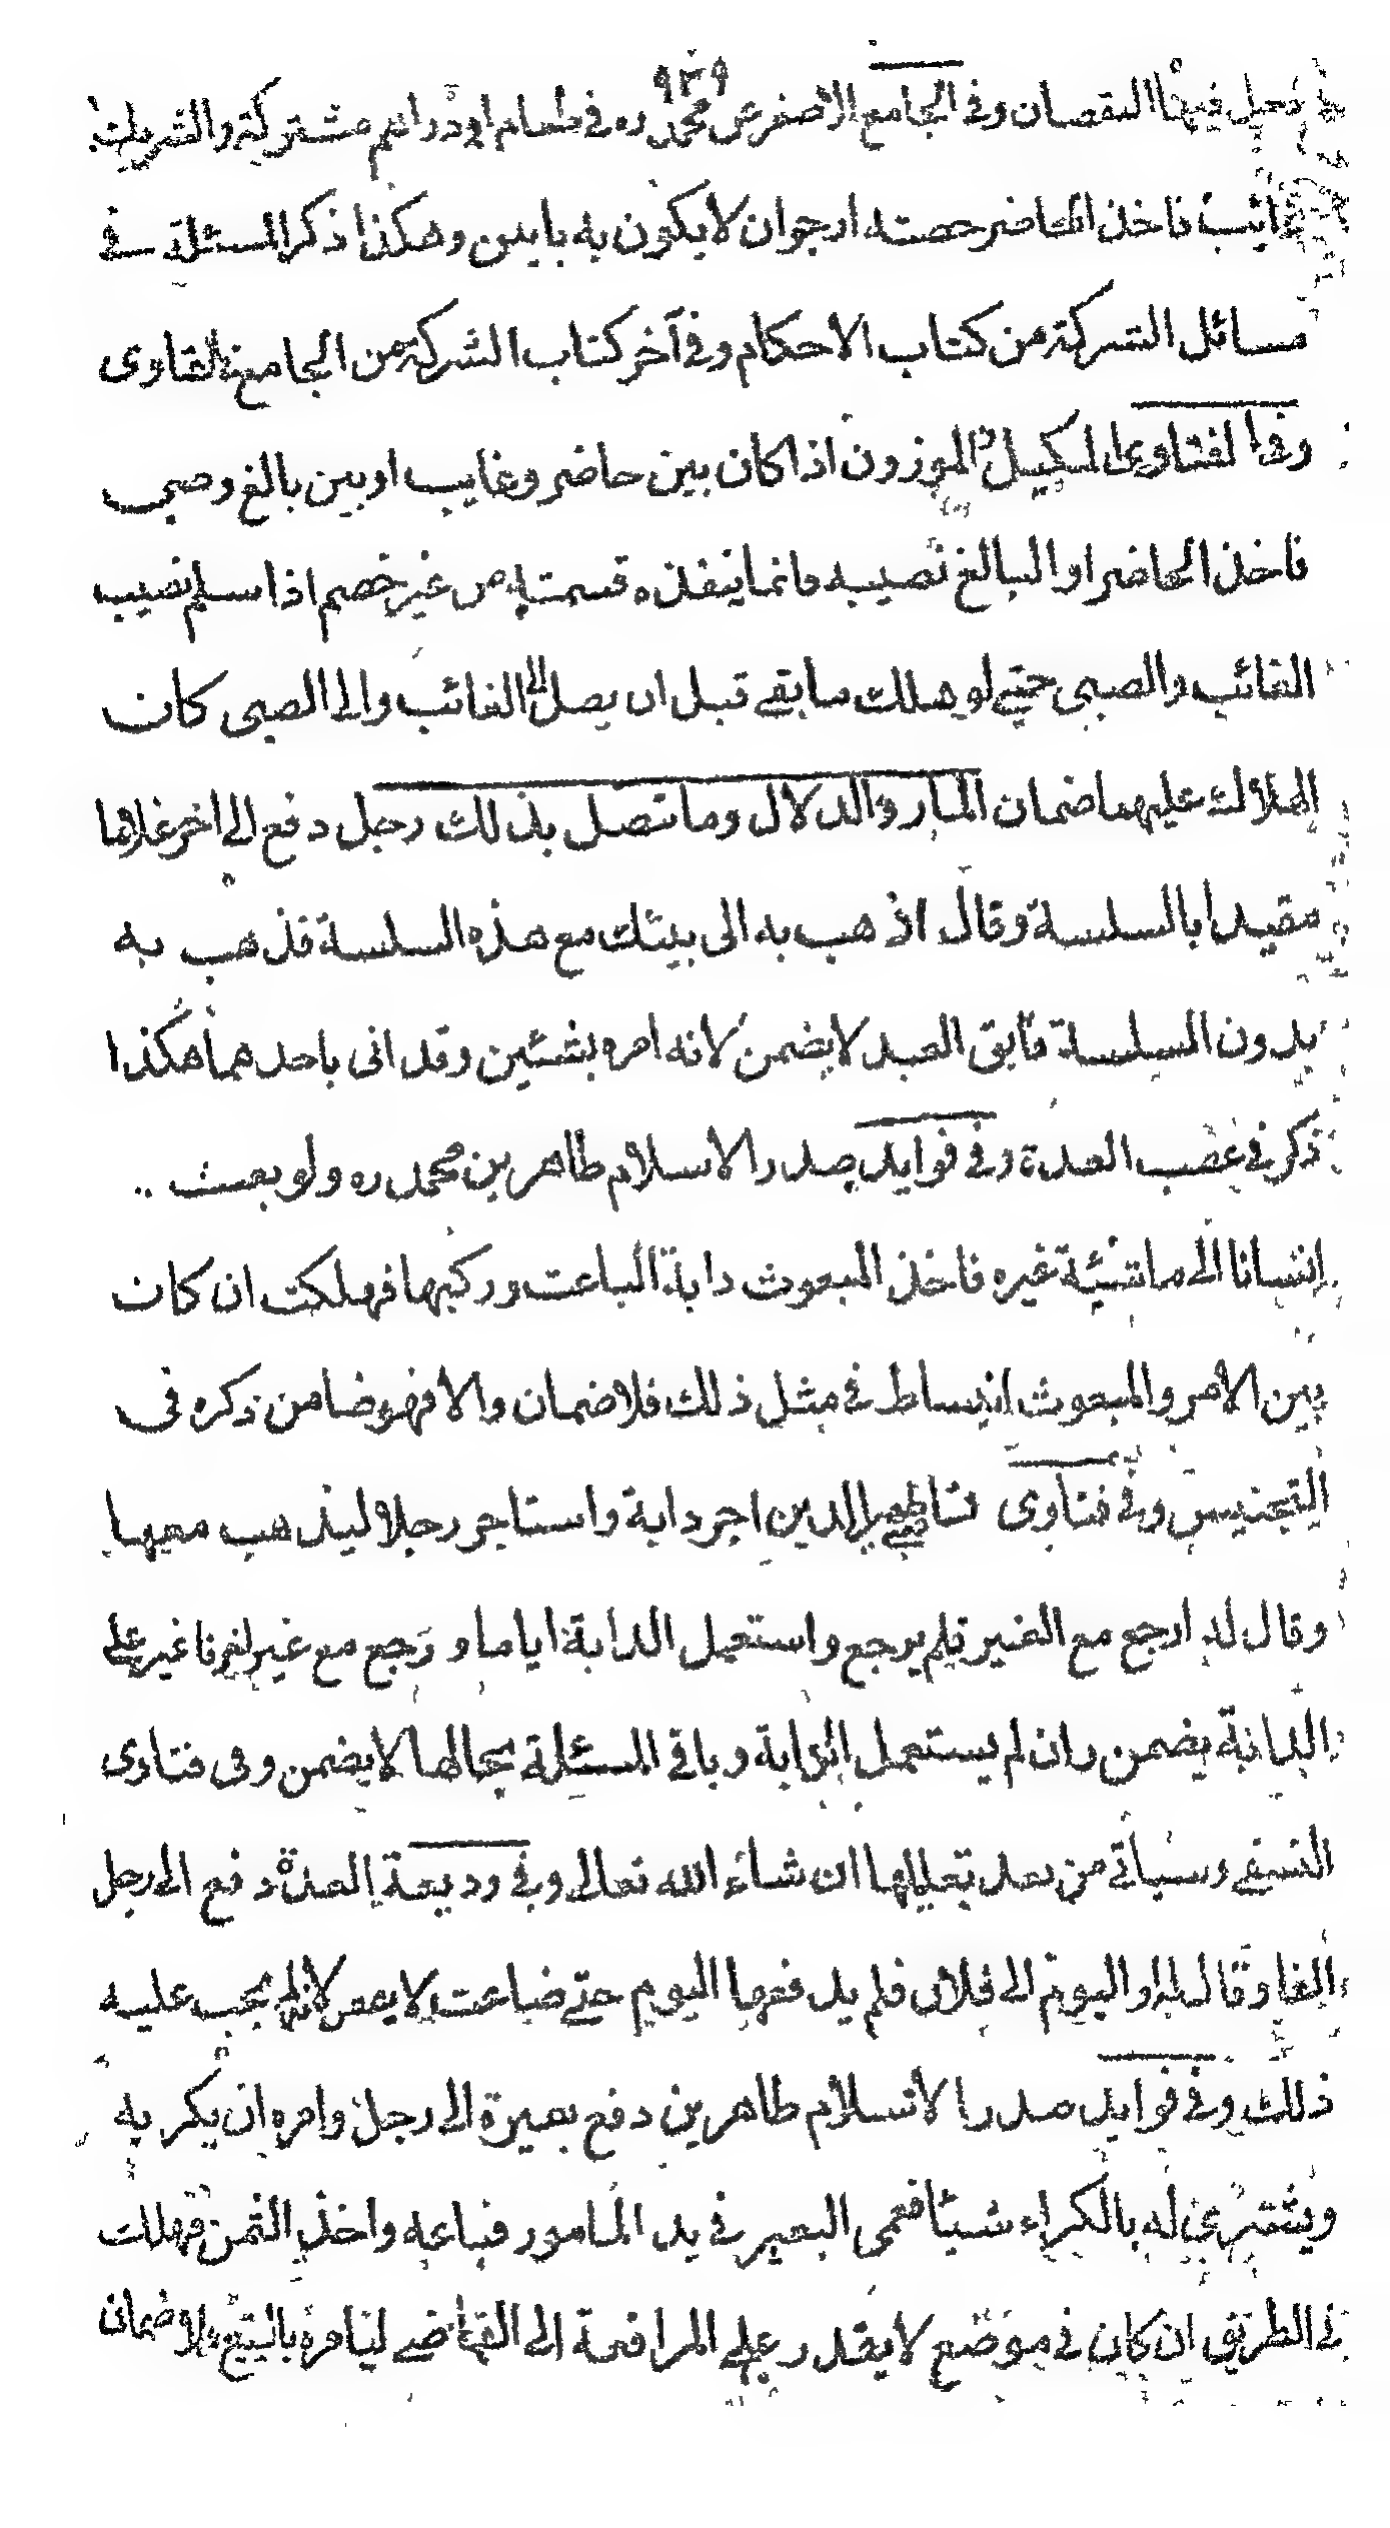 ٩٣٩
دخل فيها النقصان وفي الجامع الاصغر عن محمد ره في طعام او دراهم مشتركة والشريك
غائب فاخذ الحاضر حصته ارجوان لا يكون به باس وهكذا ذكر المسئلة في
مسائل الشركة من كتاب الاحكام وفي آخر كتاب الشركة من الجامع الفتاوى
وفي الفتاوى المكيل والموزون اذا كان بين حاضر وغايب او بين بالغ وصبي
فاخذ الحاضر او البالغ نصيبه فانما ينفذه قسمته من غير خصم اذا سلم نصيب
الغائب والصبي حتى لو هلك ما بقي قبل ان يصل الى الغائب والى الصبي كان
الهلاك عليهما ضمان المار والدلال وما تصل بذلك رجل دفع الى اخر غلاما
مقيدا بالسلسة وقال اذهب به الى بيتك مع هذه السلسة فذهب به
بدون السلسة فابق العبد لا يضمن لانه امره بشئين وقد اتى باحدهما هكذا
ذكر في غصب العدة وفي فوايد صدر الاسلام طاهر بن محمد ره ولو بعث
انسانا الى ماشية غيره فاخذ المبعوث دابة الباعث وركبها فهلكت ان كان
بين الامر والمبعوث انبساط في مثل ذلك فلا ضمان والا فهو ضامن ذكره في
التجنيس وفي فتاوى قاضي ظهير الدين اجر دابة واستاجر رجلا ليذهب معها
وقال له ارجع مع العير فلم يرجع واستعمل الدابة اياما و رجع مع غير فاغير على
الدابة يضمن وان لم يستعمل الدابة وباقي المسئلة بحالها لا يضمن وفي فتاوى
النسفي وسياتي من بعد تعليلها ان شاء الله تعالى وفي وديعة العدة دفع الى رجل
الفا وقال له اليوم الى فلان فلم يدفعها اليوم حتى ضاعت لا يضمن لانه لم يجب عليه
ذلك وفي فوايد صدر الاسلام طاهر بن دفع بعيرة الى رجل وامره ان يكريه
ويشترى له بالكراء شيئا فعمى البعير في يد المامور فباعه واخذ الثمن فهلك
في الطريق ان كان في موضع لا يقدر على المرافعة الى القاضي ليامره بالبيع فلا ضمان